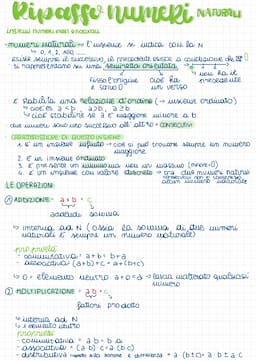 Ripasso numeri NATURALI
INSIEMI NUMERICI
numeri naturali → l'insieme si indica con la N
↳ 0, 1, 2, ...
esiste sempre il successivo, il precedente esiste a eccezione di 0
si rappresentano su una semiretta orientata
fisso l'origine cioè ha
e sono 0 un verso
È stabilita una relazione d'ordine (→ insieme ordinato)
↳ cioè stabilire se a è maggiore minore a b.
due numeri sono uno successivo all'altro = consecutivi
CARATTERISTICHE DI QUESTO INSIEME
1. È un insieme infinito → cioè si può trovare sempre un numero maggiore
2. È un insieme ordinato
3. È per senza un massimo ma ha un minimo (min=0)
4. È un insieme con valore discreto → tra due numeri naturali
alcun numero naturale
LE OPERAZIONI:
① ADDIZIONE = a+b = c
addendi somma
↳ interna ad N (ossia la somma di due numeri
naturali è sempre un numero naturale)
proprietà
- commutativa = a+b = b+a
- associativa = (a+b)+c = a+(b+c)
↳ 0 = elemento neutro a+0=a → lascia inalterato qualsiasi
numero
② MOLTIPLICAZIONE = a·b = c
fattori prodotto
↳ interna ad N
↳ 1 elemento neutro
proprietà
- commutativa = a·b = b·a
- associativa = (a·b)·c = a·(b·c)
- distributiva rispetto alla somma e differenza = a·(b±c) = a·b ± a·c